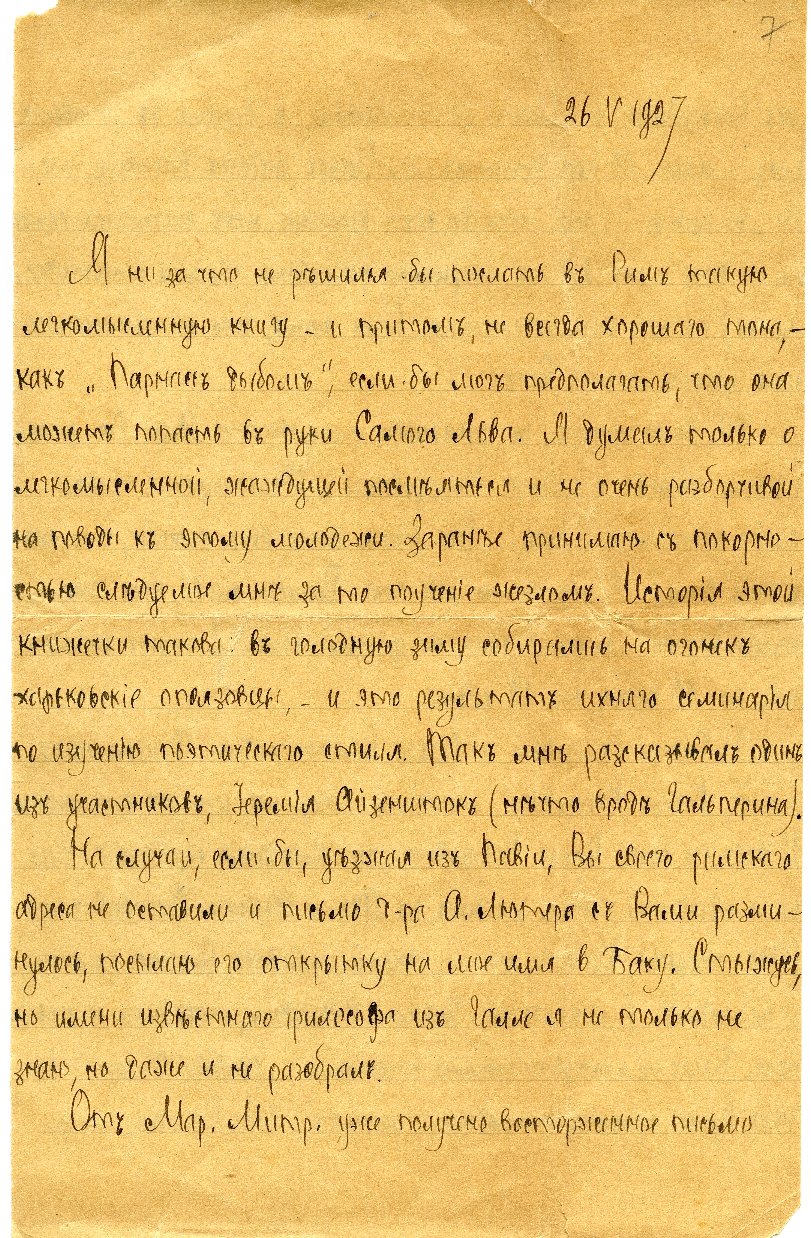 7
26 V 1927
Я ни за что не рѣшился бы послать въ Римъ такую
легкомысленную книгу – и притомъ, не всегда хорошаго тона, –
какъ „Парнасъ дыбомъ", если бы могъ предполагать, что она
можетъ попасть въ руки Самого Льва. Я думалъ только о
легкомысленной, жаждущей посмѣяться и не очень разборчивой
на поводы къ этому молодежи. Заранѣе принимаю съ покорно-
стью слѣдуемое мнѣ за то поученіе жезломъ. Исторія этой
книжечки такова: въ голодную зиму собирались на огонекъ
харьковскіе опоязовцы, – и это результатъ ихняго семинарія
по изученію поэтическаго стиля. Такъ мнѣ разсказывалъ одинъ
изъ участниковъ, Іеремія Айзенштокъ (нѣчто вродѣ Гальперина).
На случай, если бы, уѣзжая изъ Павіи, Вы своего римскаго
адреса не оставили и письмо д-ра А. Лютера съ Вами разми-
нулось, посылаю его открытку на мое имя в Баку. Стыжусь,
но имени извѣстнаго философа изъ Галле я не только не
знаю, но даже и не разобралъ.
Отъ Мар. Митр. уже получено восторженное письмо